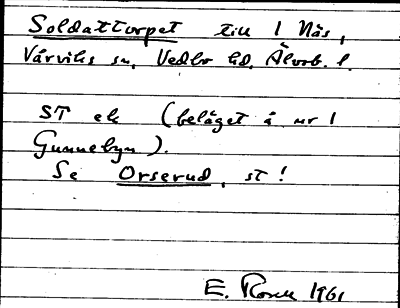 Soldattorpet till 1 Näs,
Vårviks sn, Vedbo hd, Älvsb. l.
ST ek (beläget å nr 1
Gunnebyn).
Se Orserud, st!
E. 1961